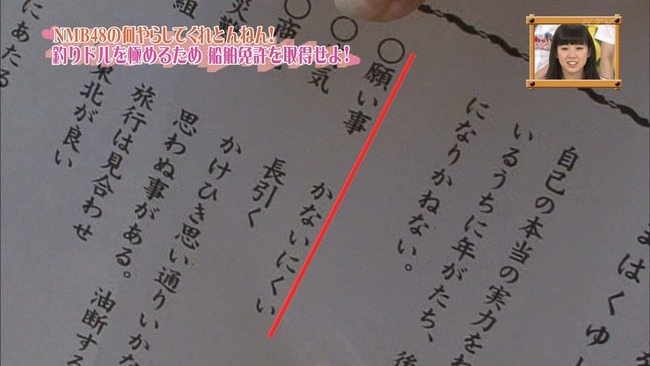 NMB48の何やらしてくれとんねん!
釣りドルを極めるため 船舶免許を取得せよ!
まはくゆ
自己の本当の実力をわ
いるうちに年がたち、後
になりかねない。
〇願い事 かないにくい
〇 気 長引く
かけひき思い通りいかな
思わぬ事がある。 油断する
旅行は見合わせ
東北が良い
にあた